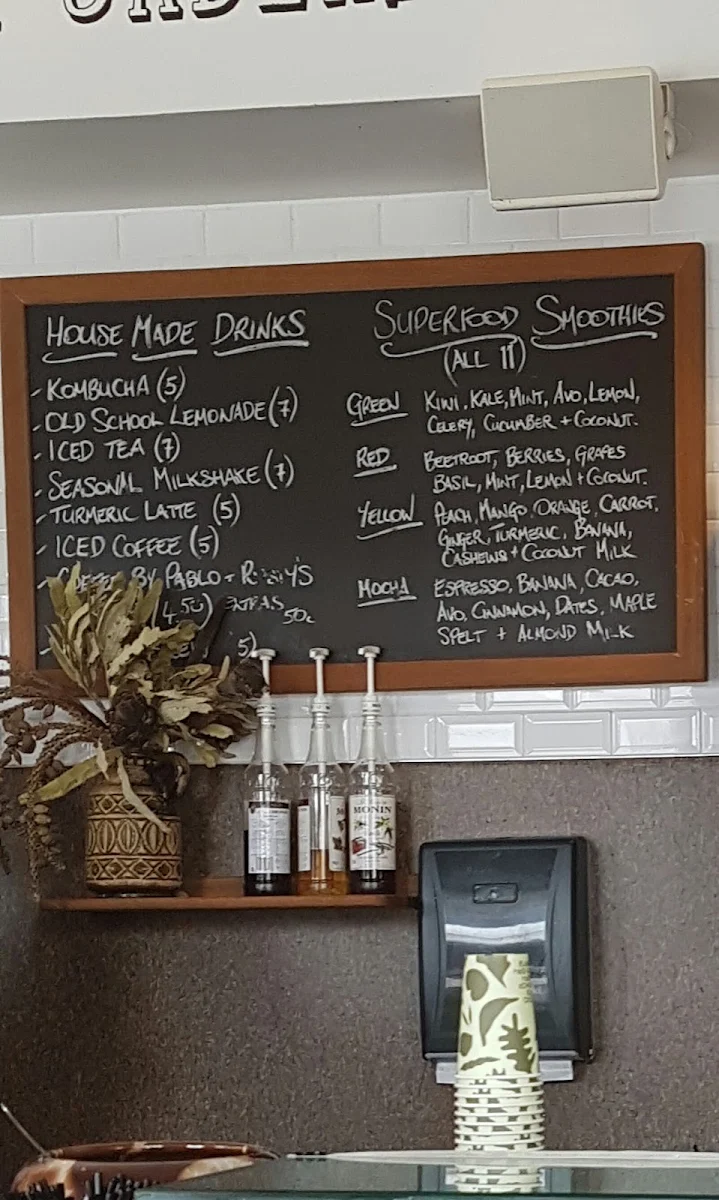 HOUSE MADE DRINKS
- KOMBUCHA (5)
- OLD SCHOOL LEMONADE (7)
- ICED TEA (7)
- SEASONAL MILKSHAKE (7)
- TURMERIC LATTE (5)
- ICED COFFEE (5)
COFFEE BY PABLO + RUSTY'S
(4.50) EXTRAS 50c
5)
SUPERFOOD SMOOTHIES
(ALL 11)
GREEN KIWI, KALE, MINT, AVO, LEMON,
CELERY, CUCUMBER + COCONUT.
RED BEETROOT, BERRIES, GRAPES
BASIL, MINT, LEMON + COCONUT.
YELLOW PEACH, MANGO, ORANGE, CARROT,
GINGER, TURMERIC, BANANA,
CASHEWS + COCONUT MILK
MOCHA ESPRESSO, BANANA, CACAO,
AVO, CINNAMON, DATES, MAPLE
SPELT + ALMOND MILK
MONIN